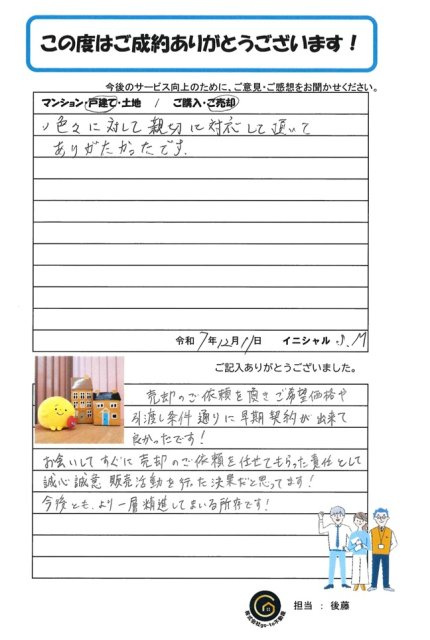 この度はご成約ありがとうございます！
今後のサービス向上のために、ご意見・ご感想をお聞かせください。
マンション・戸建て・土地 / ご購入・ご売却
色々に対して親切に対応して頂いて
ありがたかったです。
令和7年12月11日 イニシャル S.M
ご記入ありがとうございました。
売却のご依頼を頂きご希望価格や
引渡し条件通りに早期契約が出来て
良かったです！
お会いしてすぐに売却のご依頼を任せてもらった責任として
誠心誠意販売活動を行った決果だと思ってます！
今後とも、より一層精進してまいる所存です！
株式会社go-to不動産
担当 : 後藤